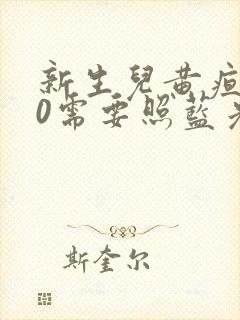 新生兒黃疸
0需要照藍光
斯奎尔